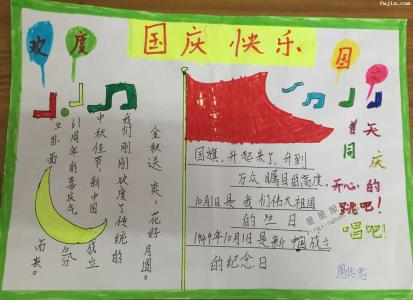 fujia.com
欢度
国庆快乐
国
金秋送爽。花好月圆。
我们刚刚欢度了传统的
中秋佳节,新中国成立
61周年的喜庆气氛
又扑面而来。
国旗,升起来了,升到
万众瞩目的高度,
10月1日是我们伟大祖国
的生日
1949年10月1日是新中国成立
的纪念日
普天
同庆
开心的
跳吧!
唱吧!